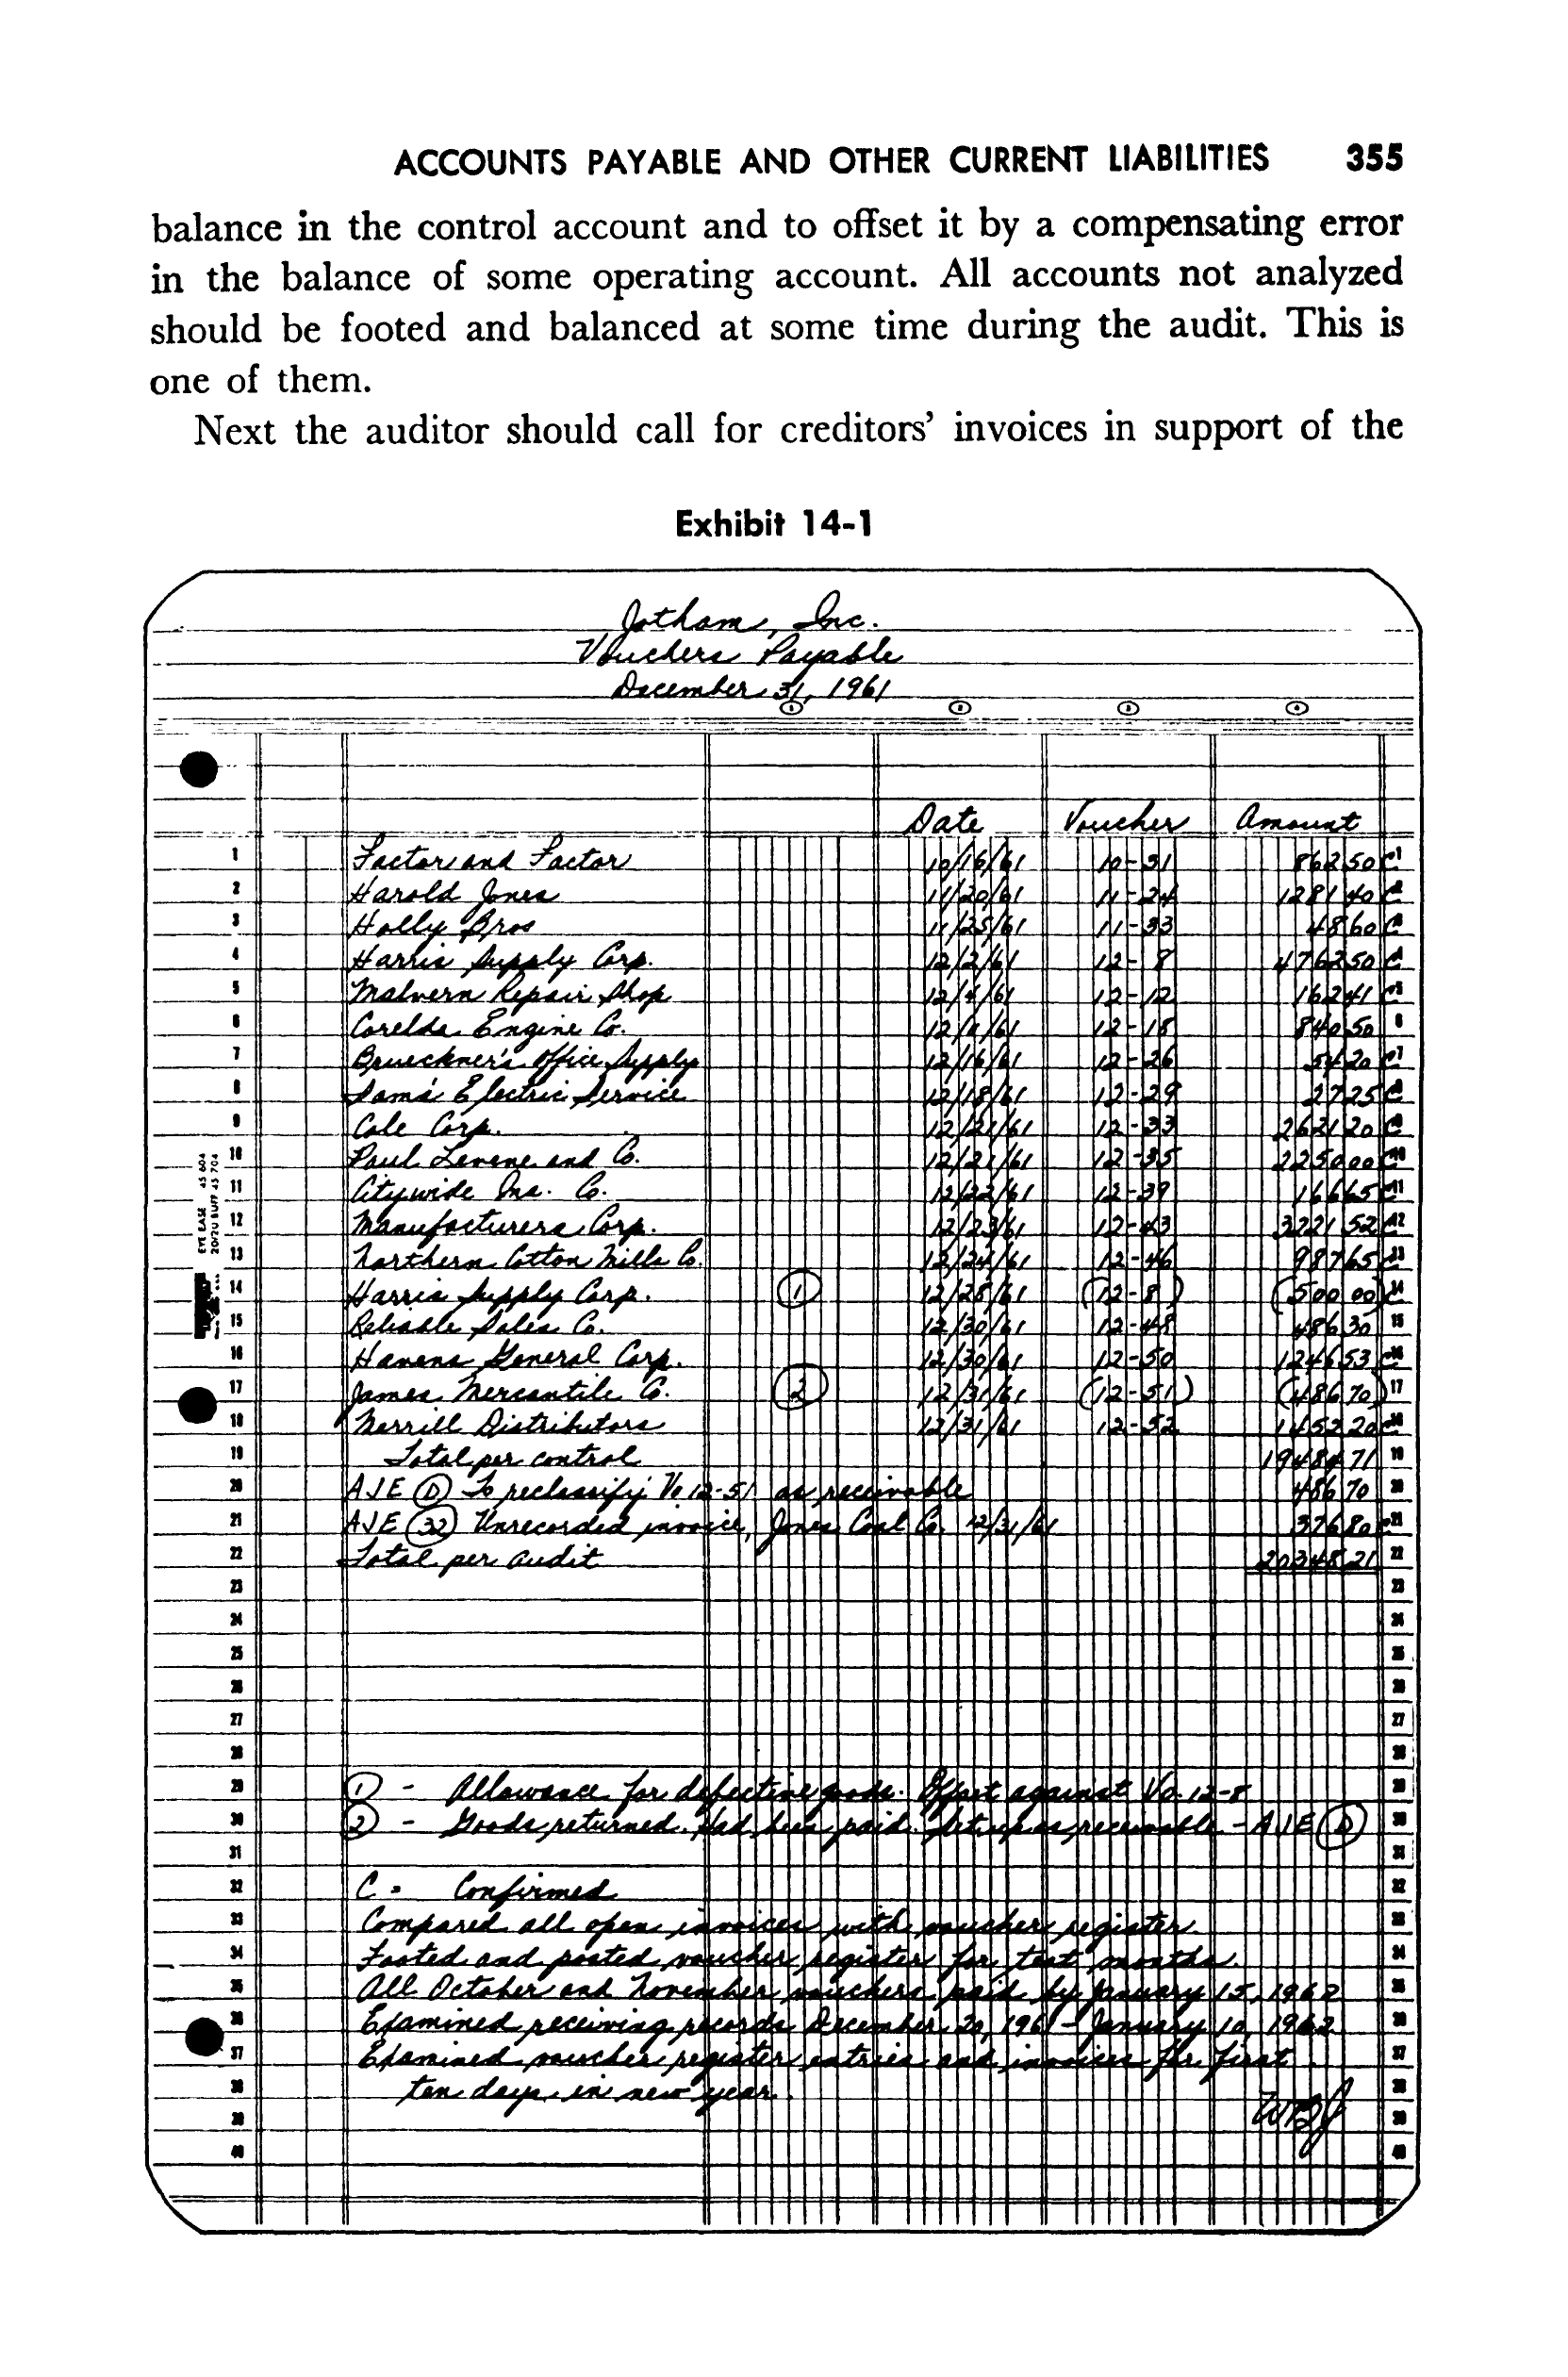 ACCOUNTS PAYABLE AND OTHER CURRENT LIABILITIES 355
balance in the control account and to offset it by a compensating error
in the balance of some operating account. All accounts not analyzed
should be footed and balanced at some time during the audit. This is
one of them.
Next the auditor should call for creditors' invoices in support of the
Exhibit 14-1
Jotham, Inc.
Vouchers Payable
December 31, 1961
1 2 3 4
Date Voucher Amount
1 Factor and Factor 10/16/61 10-31 862 50 C 1
2 Harold Jones 11/20/61 11-24 1281 40 C 2
3 Holly Bros 11/25/61 11-33 48 60 C 3
4 Harris Supply Corp. 12/2/61 12-8 4762 50 C 4
5 Malvern Repair Shop 12/4/61 12-12 162 41 C 5
6 Corelda Engine Co. 12/11/61 12-18 840 50 6
7 Brueckner's Office Supply 12/16/61 12-26 54 20 C 7
8 Sam's Electric Service 12/18/61 12-29 27 25 C 8
9 Cole Corp. 12/21/61 12-33 2621 20 C 9
10 Paul Levene and Co. 12/21/61 12-35 2250 00 C 10
11 Citywide Ins. Co. 12/22/61 12-39 166 65 C 11
12 Manufacturers Corp. 12/23/61 12-43 3221 52 C 12
13 Northern Cotton Mills Co. 12/24/61 12-46 987 65 C 13
14 Harris Supply Corp. ① 12/28/61 (12-8) (500 00) C 14
15 Reliable Sales Co. 12/30/61 12-48 486 30 15
16 Havens General Corp. 12/30/61 12-50 1246 53 C 16
17 James Mercantile Co. ② 12/31/61 (12-51) (486 70) 17
18 Merrill Distributors 12/31/61 12-52 1452 20 C 18
19 Total per control 19484 71 19
20 AJE Ⓓ To reclassify Vo 12-51 as receivable 486 70 20
21 AJE ㉜ Unrecorded invoice, Jones Coal Co. 12/31/61 376 80 C 21
22 Total per audit 20348 21 22
23 23
24 24
25 25
26 26
27 27
28 28
29 ① - Allowance for defective goods. Offset against Vo. 12-8 29
30 ② - Goods returned. Had been paid. Set up as receivable - AJE Ⓓ 30
31 31
32 C = Confirmed 32
33 Compared all open invoices with voucher register. 33
34 Footed and posted voucher register for test months. 34
35 All October and November vouchers paid by January 15, 1962 35
36 Examined receiving records December 20, 1961 - January 10, 1962 36
37 Examined voucher register entries and invoices for first 37
38 ten days in new year. 38
39 WBJ 39
40 40
EYE EASE 45 604
20/20 BUFF 45 704